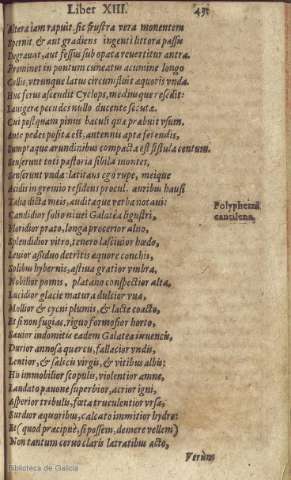 Liber XIII. 435
Altera iam rapuit. sic frustra vera monentem
Spernit, & aut gradiens ingenti littora passu
Degrauat, aut fessus sub opaca reuertitur antra.
Prominet in pontum cuneatus acumine longo
Collis, vtrunque latus circunfluit æquoris vnda.
Huc ferus ascendit Cyclops, mediusque resedit:
Lanigeræ pecudes nullo ducente secutæ.
Cui postquam pinus baculi quæ præbuit vsum,
Ante pedes posita est, antennis apta ferendis,
Sumptaque arundinibus compacta est fistula centum.
Senserunt toti pastoria sibila montes,
Senserunt vndæ: latitans ego rupe, meique
Acidis in gremio residens procul. auribus hausi
Talia dicta meis, auditaque verba notaui:
Polyphemi
cantilena.
Candidior folio niuei Galatea ligustri,
Floridior prato, longa procerior alno,
Splendidior vitro, tenero lasciuior hœdo,
Leuior assiduo detritis æquore conchis,
Solibus hybernis, æstiua gratior vmbra,
Nobilior pomis, platano conspectior alta,
Lucidior glacie matura dulcior vua,
Mollior & cycni plumis, & lacte coacto,
Et si non fugias, riguo formosior horto,
Sæuior indomitis eadem Galatea iuuencis,
Durior annosa quercu, fallacior vndis,
Lentior, & salicis virgis, & vitibus albis:
His immobilior scopulis, violentior amne,
Laudato pauone superbior, acrior igni,
Asperior tribulis, fœta truculentior vrsa,
Surdior æquoribus, calcato immitior hydro:
Et (quod præcipuè, si possem, demere vellem)
Non tantum ceruo claris latratibus acto,
Verùm
Biblioteca de Galicia